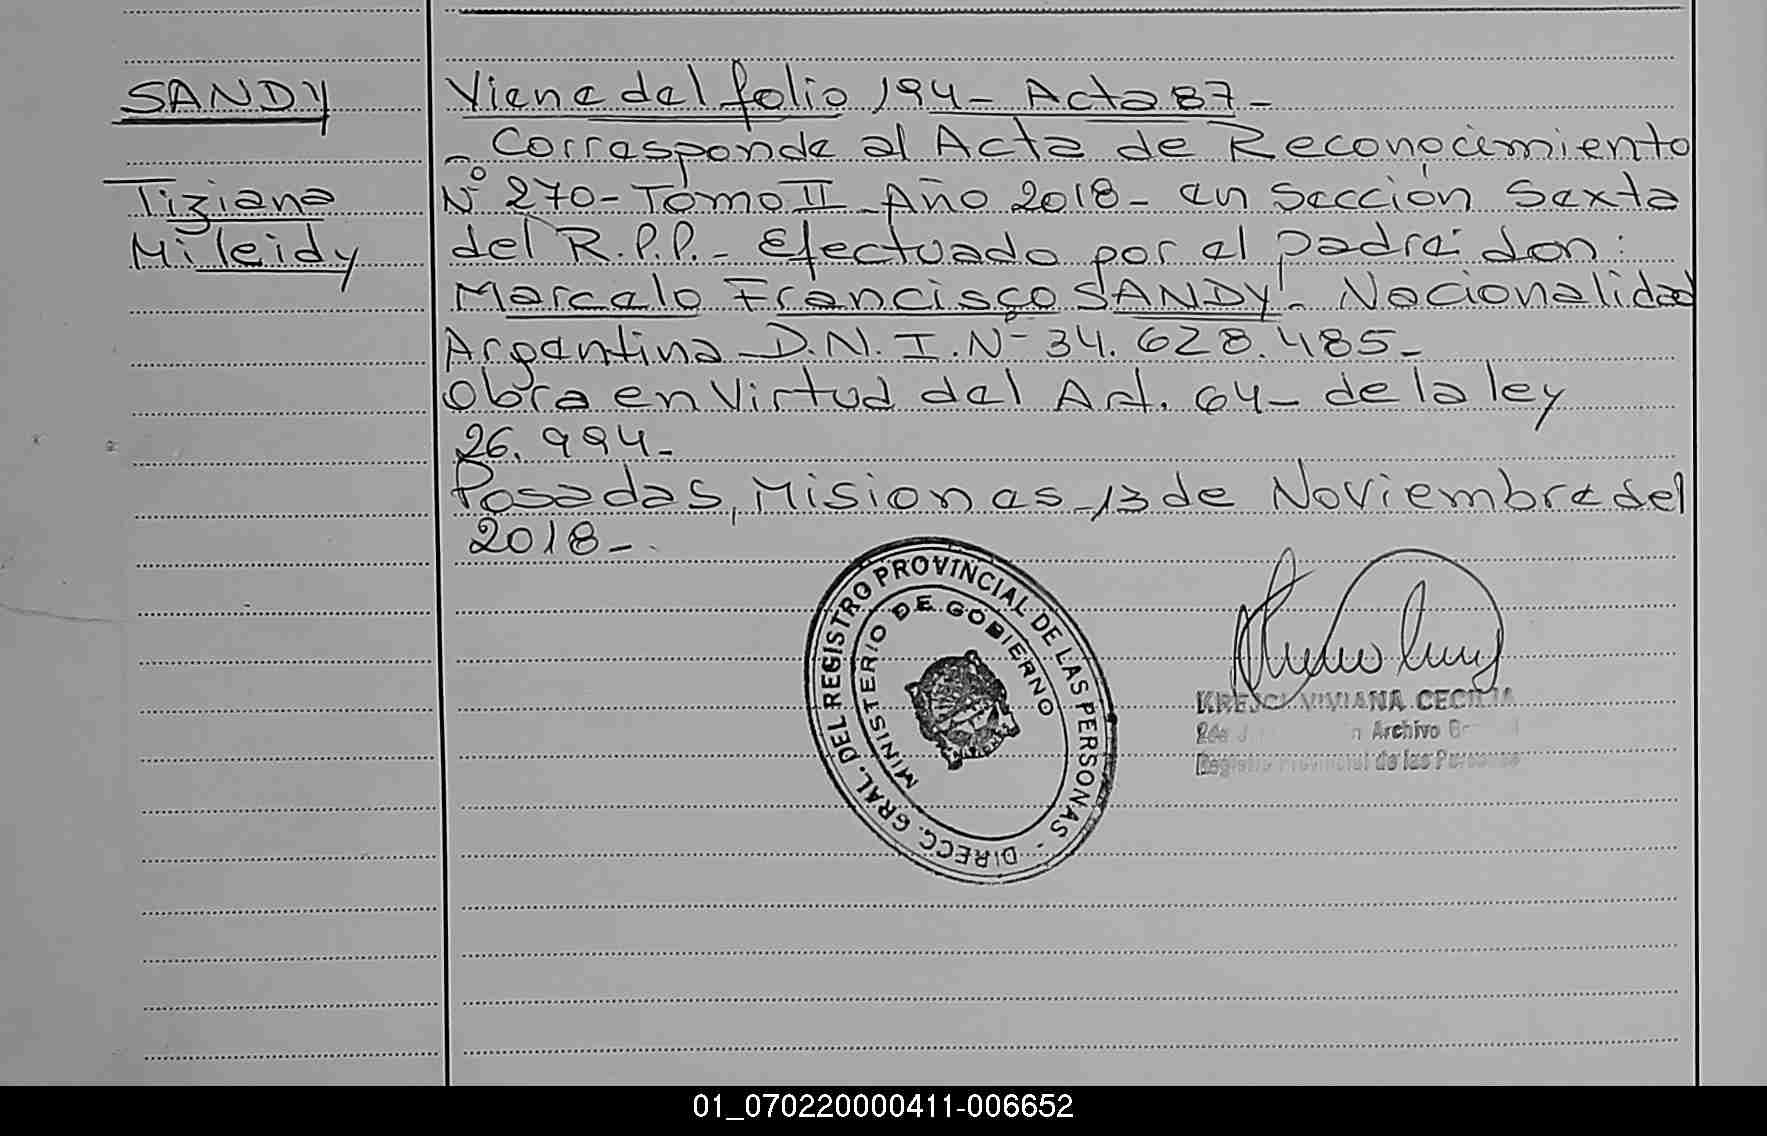 SANDY
Tiziana
Mileidy
Viene del folio 194- Acta 87-
- Corresponde al Acta de Reconocimiento
Nº 270- Tomo II- Año 2018- en Sección Sexta
del R.P.P.- Efectuado por el padre: don:
Marcelo Francisco SANDY- Nacionalidad
Argentina- D.N.I. Nº 34.628.485-
Obra en Virtud del Art. 64- de la ley
26.994-
Posadas, Misiones -13 de Noviembre del
2018-
DIRECC. GRAL. DEL REGISTRO PROVINCIAL DE LAS PERSONAS -
MINISTERIO DE GOBIERNO
KREJCI VIVIANA CECILIA
Archivo
Registro Provincial de las Personas
01_070220000411-006652